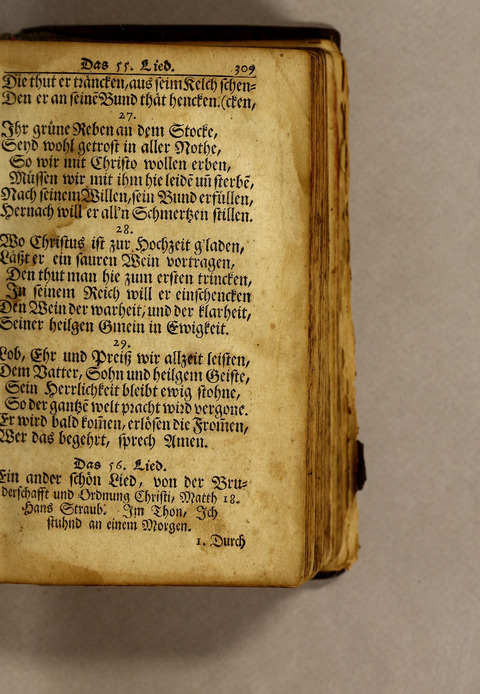 Das 55. Lied. 309
Die thut er träncken, aus seim Kelch schen-
Den er an seinē Bund thåt hencken. (cken,
27.
Ihr grüne Reben an dem Stocke,
Seyd wohl getrost in aller Nothe,
So wir mit Christo wollen erben,
Müssen wir mit ihm hie leidē un̄ sterbē,
Nach seinem Willen, sein Bund erfüllen,
Hernach will er all'n Schmertzen stillen.
28.
Wo Christus ist zur Hochzeit g'laden,
Läßt er ein sauren Wein vortragen,
Den thut man hie zum ersten trincken,
In seinem Reich will er einschencken
Den Wein der warheit, und der klarheit,
Seiner heilgen Gmein in Ewigkeit.
29.
Lob, Ehr und Preiß wir allzeit leisten,
Dem Vatter, Sohn und heilgem Geiste,
Sein Herrlichkeit bleibt ewig stohne,
So der gantzē welt pracht wird vergone.
Er wird bald kom̄en, erlösen die From̄en,
Wer das begehrt, sprech Amen.
Das 56. Lied.
Ein ander schön Lied, von der Bru-
derschafft und Ordnung Christi, Matth 18.
Hans Straub. Im Thon, Ich
stuhnd an einem Morgen.
1. Durch